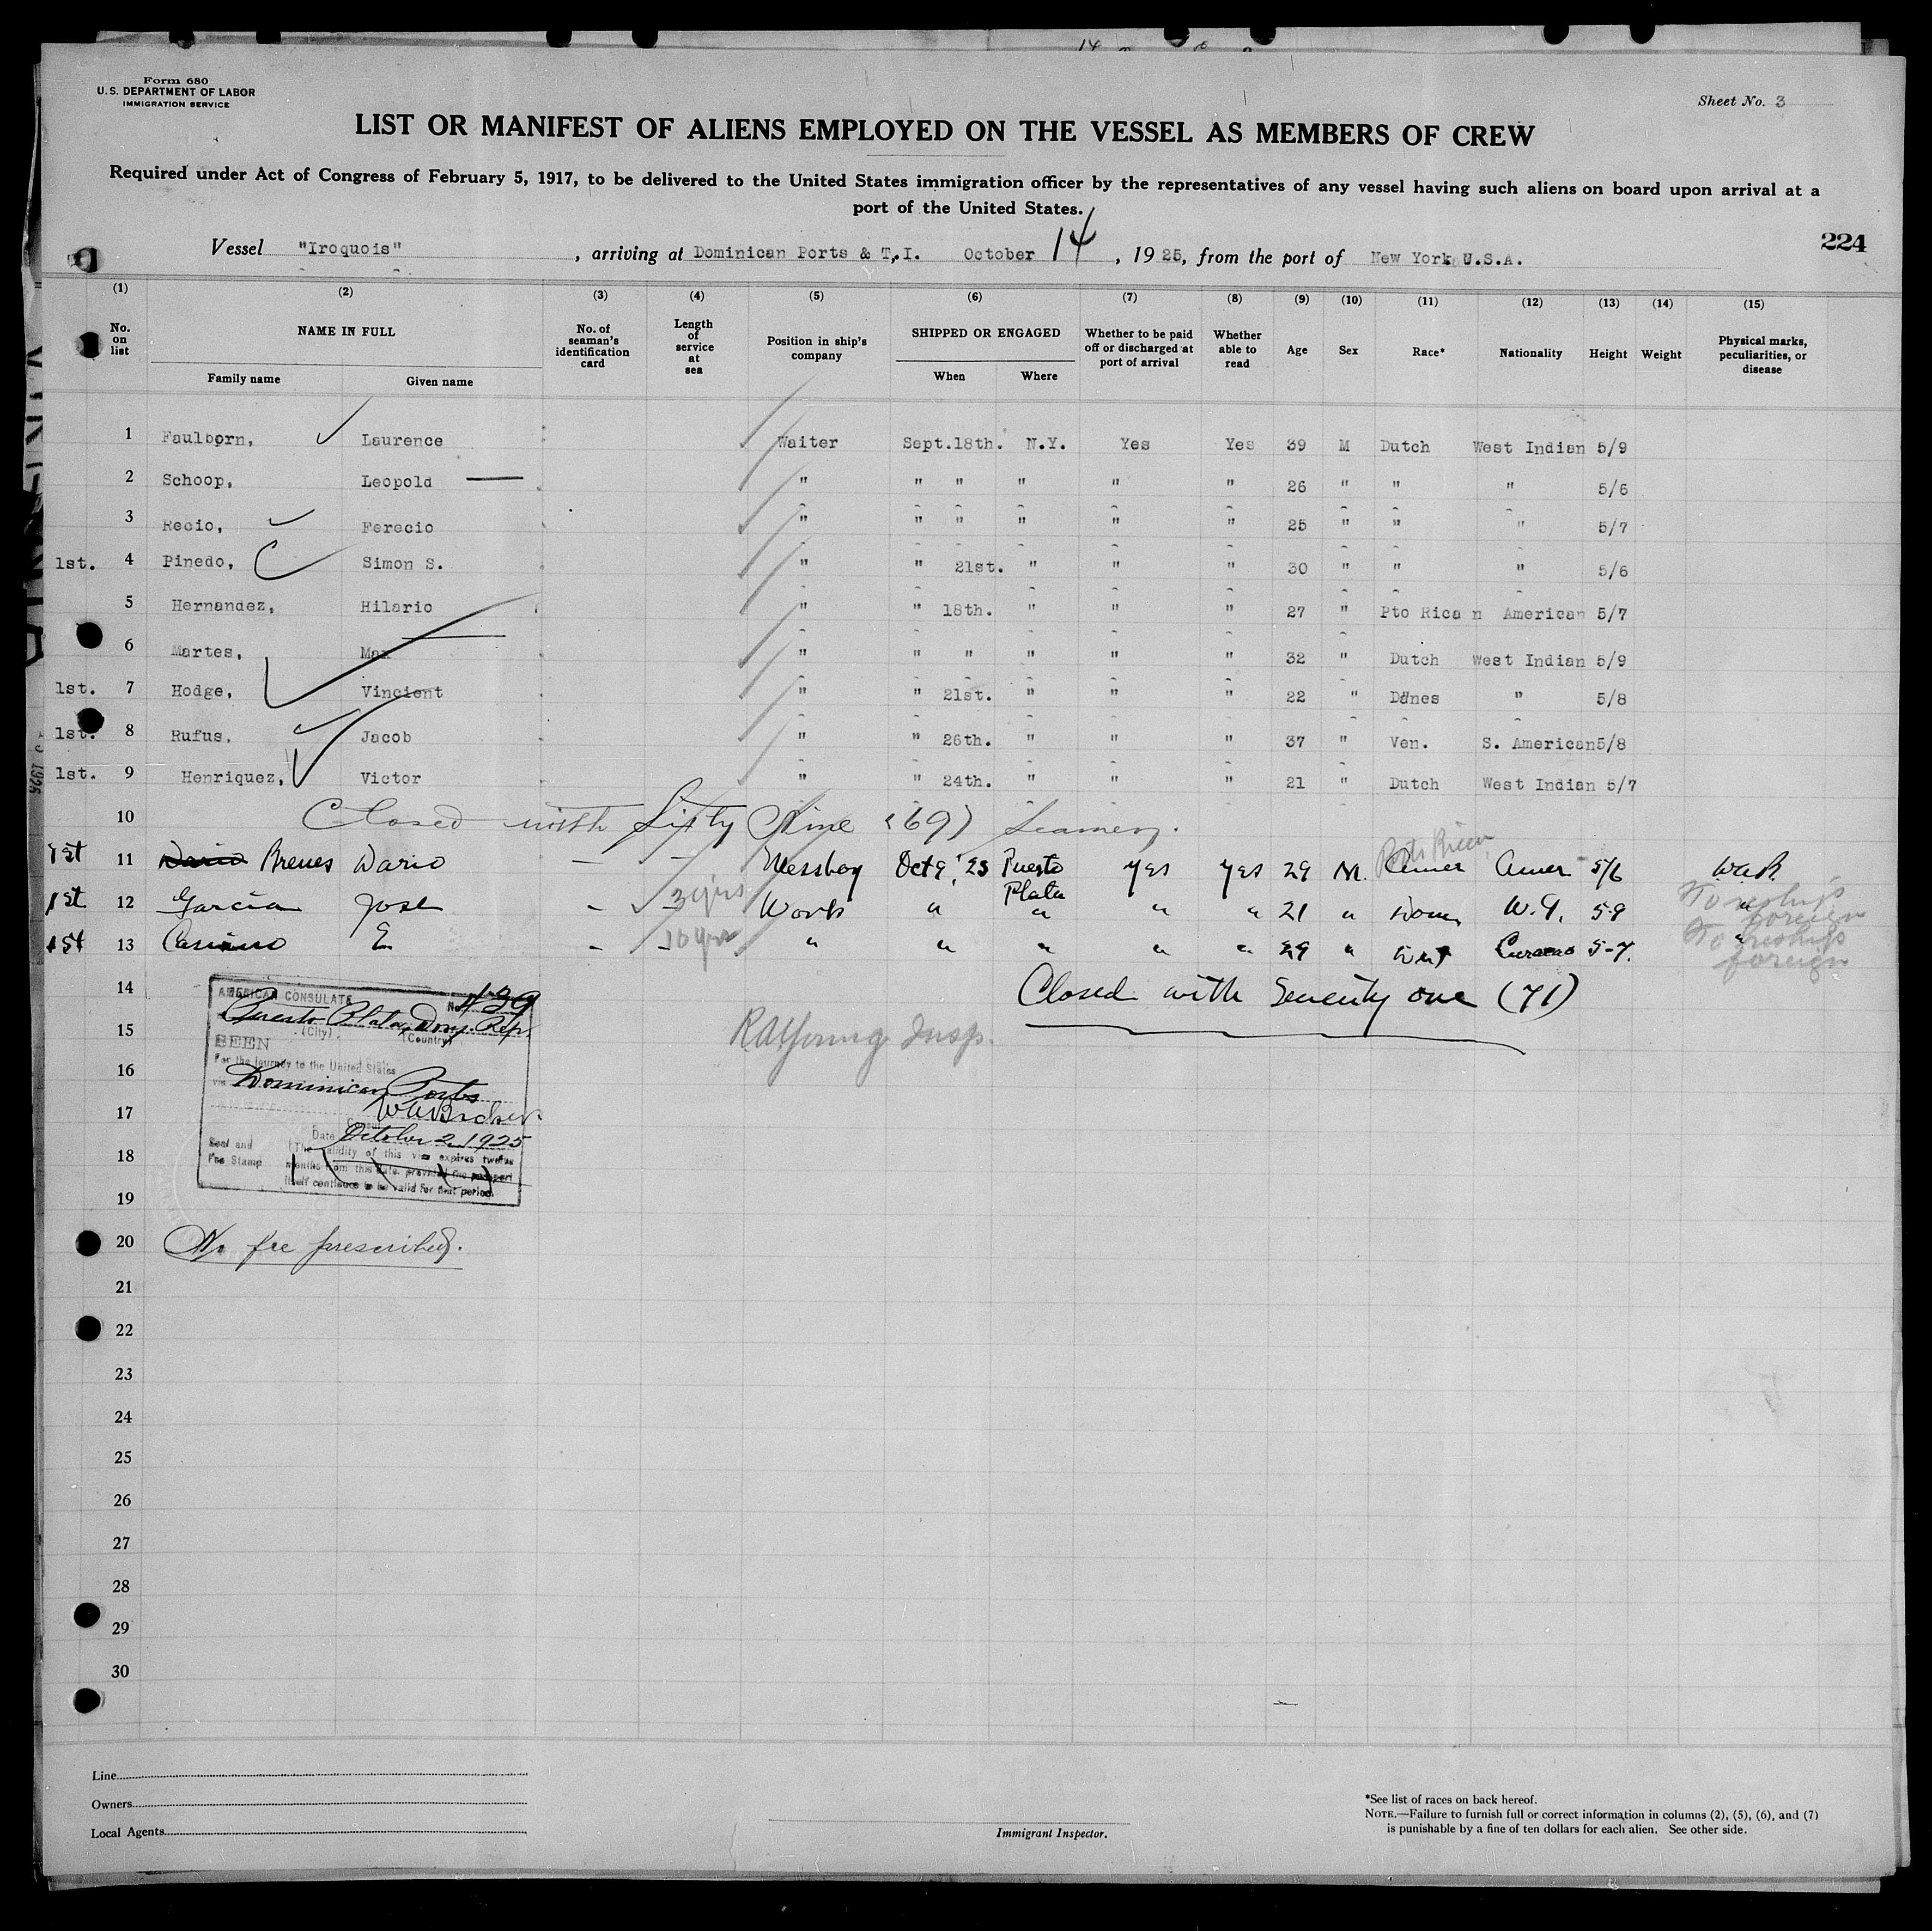 Form 680
U.S. DEPARTMENT OF LABOR
IMMIGRATION SERVICE
Sheet No. 3
LIST OR MANIFEST OF ALIENS EMPLOYED ON THE VESSEL AS MEMBERS OF CREW
Required under Act of Congress of February 5, 1917, to be delivered to the United States immigration officer by the representatives of any vessel having such aliens on board upon arrival at a
port of the United States.
224
Vessel "Iroquois" , arriving at Dominican Ports & T.I. October 14 , 1925, from the port of New York U.S.A.
(1) (2) (3) (4) (5) (6) (7) (8) (9) (10) (11) (12) (13) (14) (15)
No. on list NAME IN FULL Family name Given name No. of seaman's identification card Length of service at sea Position in ship's company SHIPPED OR ENGAGED When Where Whether to be paid off or discharged at port of arrival Whether able to read Age Sex Race* Nationality Height Weight Physical marks, peculiarities, or disease
1 Faulborn, Laurence Waiter Sept.18th. N.Y. Yes Yes 39 M Dutch West Indian 5/9
2 Schoop, Leopold " " " " " " 26 " " " 5/6
3 Recio, Ferecio " " " " " " 25 " " " 5/7
1st. 4 Pinedo, Simon S. " " 21st. " " " 30 " " " 5/6
5 Hernandez, Hilario " " 18th. " " " 27 " Pto Rica n American 5/7
6 Martes, Max " " " " " " 32 " Dutch West Indian 5/9
1st. 7 Hodge, Vincient " " 21st. " " " 22 " Danes " 5/8
1st. 8 Rufus, Jacob " " 26th. " " " 37 " Ven. S. American 5/8
1st. 9 Henriquez, Victor " " 24th. " " " 21 " Dutch West Indian 5/7
10 Closed with Sixty Nine (69) Seamen.
1st 11 Dario Brenes Dario — — Messboy Oct 9, '25 Puerto Plata Yes Yes 29 M. Porto Rican Amer Amer 5/6 W.A.B.
1st 12 Garcia Jose — 3 yrs Work " " " " 21 " Dom W.I. 5-9 " To reship foreign
1st 13 E — 10 yrs " " " " " 29 " Curacao 5-7. " To reship foreign
14 Closed with Seventy one (71)
AMERICAN CONSULATE No. 439
Puerto Plata, Dom. Rep.
(City) (Country)
SEEN
For the journey to the United States
via Dominican Ports
Consul
Date October 2, 1925
Seal and Fee Stamp
The validity of this visa expires twelve
months from this date, provided the passport
itself continues to be valid for that period.
15 Insp.
16
17
18
19
20 No fee prescribed.
21
22
23
24
25
26
27
28
29
30
Line
Owners
Local Agents
Immigrant Inspector.
*See list of races on back hereof.
NOTE.—Failure to furnish full or correct information in columns (2), (5), (6), and (7)
is punishable by a fine of ten dollars for each alien. See other side.